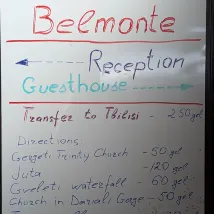 Belmonte
Reception
Guesthouse
Transfer to Tbilisi - 250 gel
Directions
Gergeti Trinity Church - 50 gel
Juta - 120 gel
Gveleti waterfall - 60 gel
Church in Dariali Gorge - 50 gel